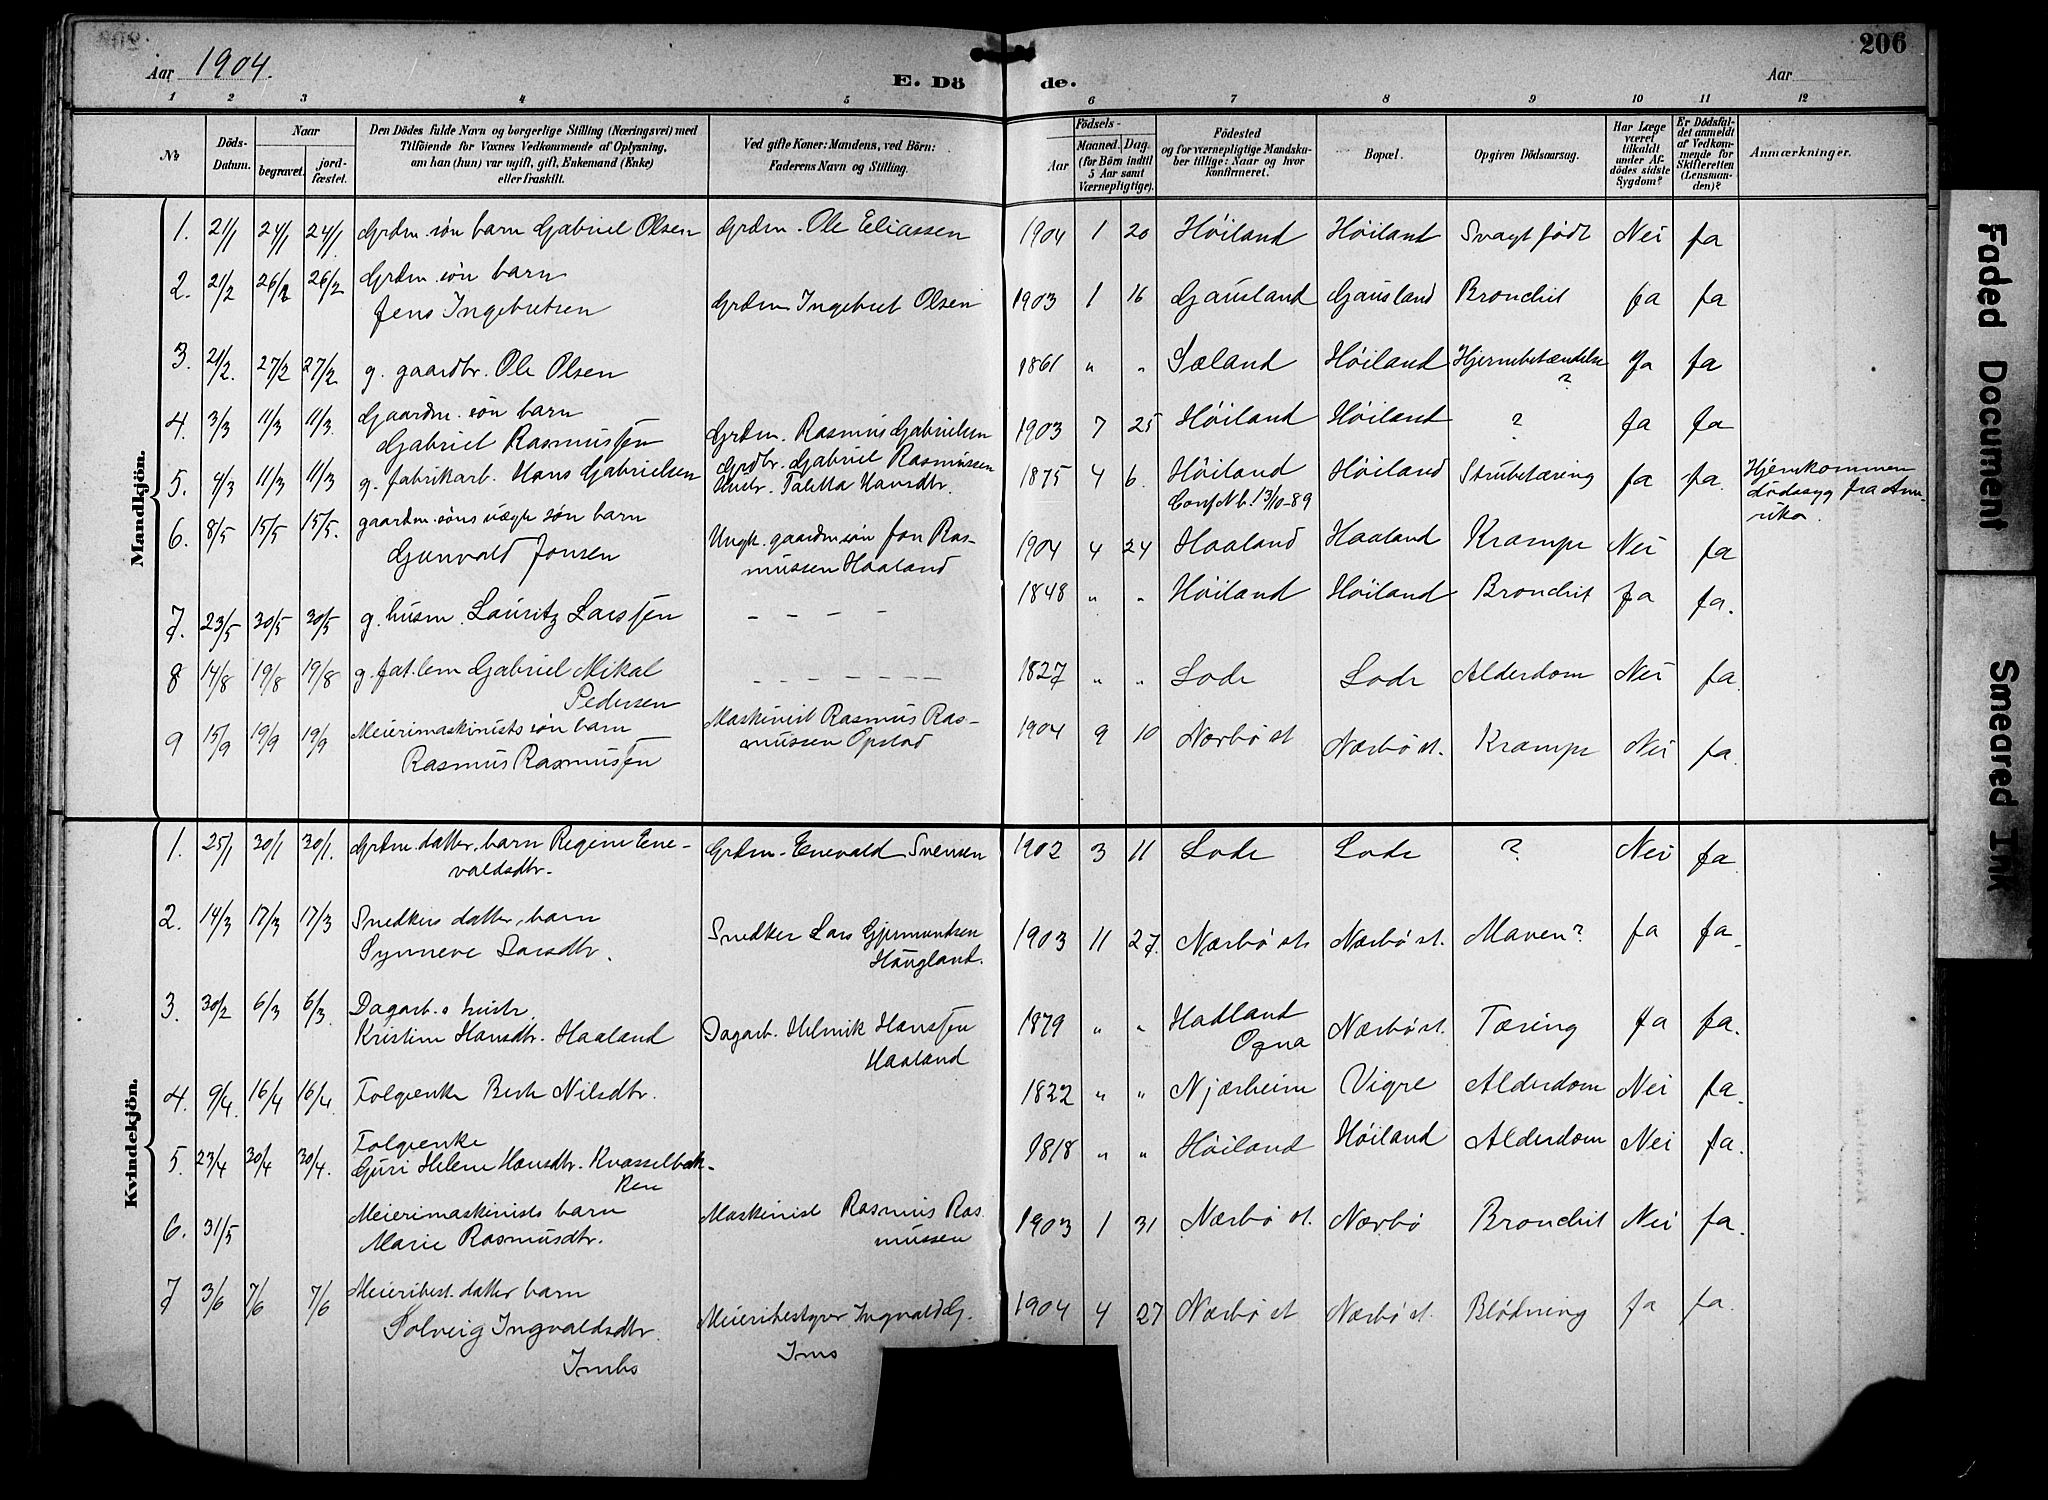 Aar 1904.
E. Döde.
Aar
206
1 2 3 4 5 6 7 8 9 10 11 12
No
Döds-Datum.
Naar
begravet.
jordfæstet.
Den Dödes fulde Navn og borgerlige Stilling (Næringsvei) med
Tilföiende for Voxnes Vedkommende af Oplysning,
om han (hun) var ugift, gift, Enkemand (Enke)
eller fraskilt.
Ved gifte Koner: Mandens, ved Börn:
Faderens Navn og Stilling.
Födsels-
Aar
Maaned. Dag.
(for Börn indtil
5 Aar samt
Værnepligtige).
Födested
og for værnepligtige Mandskaber
tillige: Naar og hvor
konfirmeret.
Bopæl.
Opgiven Dödsaarsag.
Har Læge
været
tilkaldt
under Afdödes
sidste
Sygdom?
Er Dödsfaldet
anmeldt
af Vedkommende
for
Skifteretten
(Lensmanden)?
Anmærkninger.
Mandkjön.
1. 21/1 24/1 24/1 Grdm. søn barn Gabriel Olsen Grdm. Ole Eliassen 1904 1 20 Høiland Høiland Svagt født Nei Ja
2. 21/2 26/2 26/2 Grdm. søn barn
Jens Ingebretsen Grdm Ingebret Olsen 1903 1 16 Gausland Gausland Bronchit Ja Ja
3. 21/2. 27/2 27/2 g. gaardbr. Ole Olsen 1861 " " Sæland Høiland Hjernebetændelse ? Ja Ja
4. 3/3 11/3 11/3. Gaardm. søn barn
Gabriel Rasmussen Grdm. Rasmus Gabrielsen 1903 7 25 Høiland Høiland ? Ja Ja
5. 4/3 11/3 11/3 g. fabrikarb. Hans Gabrielsen Grdbr. Gabriel Rasmussen
Hustr. Taletta Hansdtr. 1875 4 6. Høiland Høiland Strubetæring Ja Ja. Hjemkommen
Conf. N.b. 13/10-89 dødssyg fra Amerika.
6. 8/5 15/5 15/5. gaardm. søns uægte søn barn
Gunvald Jonsen Ungk. gaardm. søn Jon Rasmussen
Haaland 1904 4 24 Haaland Haaland Krampe Nei Ja
7. 23/5 30/5 30/5 g. husm. Lauritz Larssen - - - - 1848 " " Høiland Høiland Bronchit Ja Ja.
8 14/8 19/8 19/8 g. fat.lem Gabriel Mikal
Pedersen - - - - - - - 1827 " " Lode Lode Alderdom Nei Ja.
9 15/9 19/9 19/9 Meierimaskinists søn barn
Rasmus Rasmussen Maskinist Rasmus Rasmussen
Opstad 1904 9 10 Nærbø st Nærbø st. Krampe Nei Ja.
Kvindekjön.
1. 25/1 30/1 30/1. Grdm. datter, barn Regine Enevaldsdtr.
Grdm. Enevald Svensen 1902 3 11 Lode Lode ? Nei Ja.
2. 14/3 17/3 17/3 Snedkers datter, barn
Synneve Larsdtr. Snedker Lars Gjermundsen
Haugland. 1903 11 27. Nærbø st. Nærbø st. Maven? Ja Ja.
3. 30/2 6/3 6/3. Dagarb.s hustr.
Kristine Hansdtr. Haaland Dagarb. Helmik Hanssen
Haaland 1879 " " Hadland
Ogna Nærbø st. Tæring Ja Ja.
4. 9/4. 16/4 16/4. Folgeenke Berte Nilsdtr. 1822 " " Njærheim Vigre Alderdom Nei Ja.
5. 23/4 30/4 30/4. Folgeenke
Guri Helene Hansdtr. Kvasselbakken
1818 " " Høiland Høiland Alderdom Nei Ja.
6. 31/5 Meierimaskinists barn
Marie Rasmusdtr. Maskinist Rasmus Rasmussen
1903 1 31 Nærbø st. Nærbø Bronchit Nei Ja.
7 3/6 7/6 7/6 Meieribest. datter barn
Solveig Ingvaldsdtr.
Imbs Meieribestyrer Ingvald G.
Ims 1904 4 27 Nærbø st Nærbø st. Blødning Ja Ja.
Faded Document
Smeared Ink